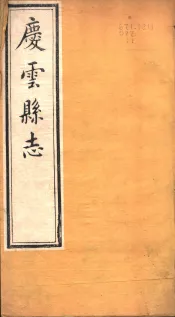 慶雲縣志